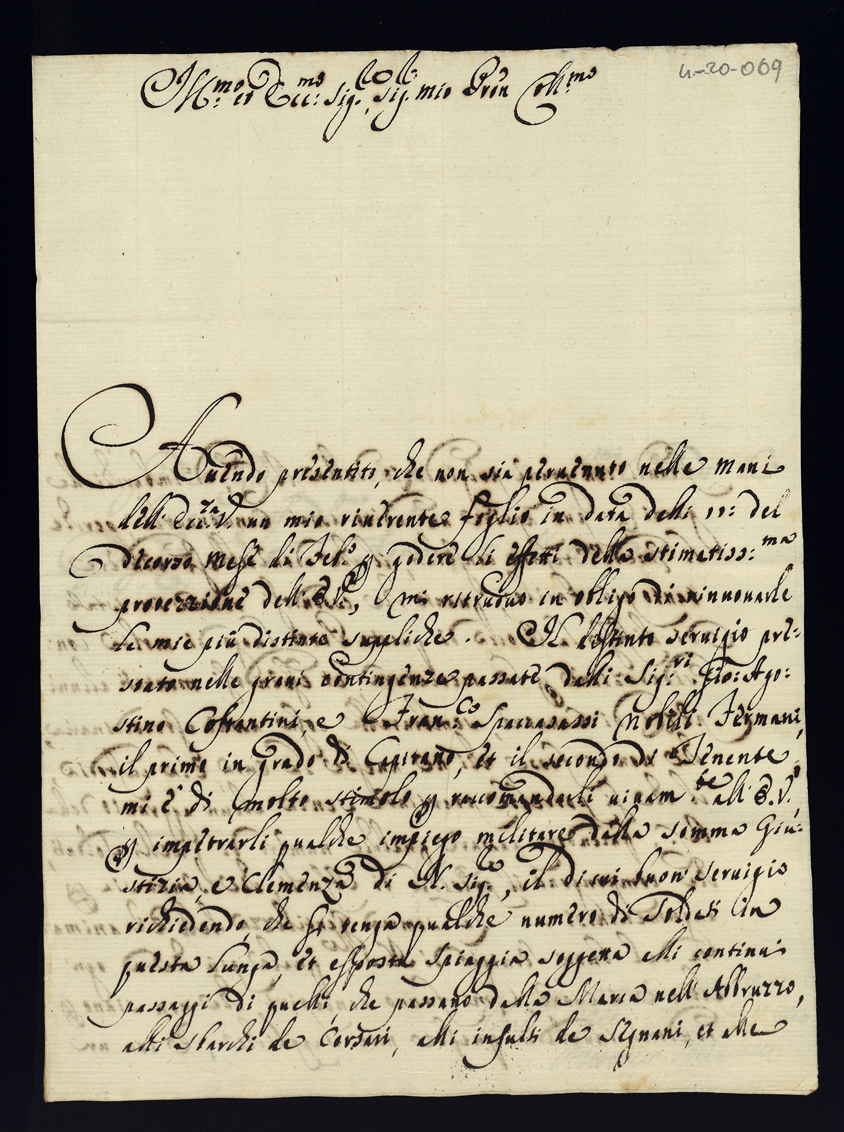 4-20-069
Ill.mo et Ecc.mo Sig.re, Sig.r mio Pron Coll.mo
Auendo presentito, che non sia peruenuto nelle mani
dell'Ecc.za V. un mio riuerente foglio in data delli 11: del
decorso mese di Feb.o p godere li effetti della stimatiss:ma
protezzione dell'E.V., mi ritruouo in obligo di rinnouarle
le mie più distinte suppliche. Il distinto seruigio pre:
stato nelle graui contingenze passate dalli Sig.ri Gio: Ago:
stino Cosrantini, e Fran.co Spaccasassi Nobili Fermani,
il primo in grado di Capitano, et il secondo di Tenente,
mi è di molto stimolo p raccomandarli viuam.te all'E.V.,
p impetrarli qualche impiego militare dalla somma Giu:
stizia, e Clemenza di N. Sig.re, il di cui buon seruigio
richiedendo, che si tenga qualche numero di Soldati in
questa lunga, et esposta spiaggia soggetta alli continui
passaggi di quelli, che passano dalla Marca nell'Abbruzzo,
alli sbarchi de Corsari, alli insulti de , et alle